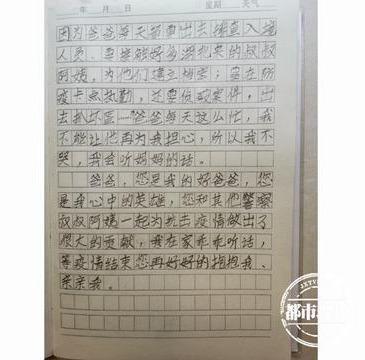 年 月 日 星期 天气
因为爸爸每天都要出去排查入境
人员、要接触好多湖北来的叔叔
阿姨,为他们建立档案;要在防
疫卡点执勤,还要侦破案件,出
去抓坏蛋……爸爸每天这么忙,我
不能让他再为我担心,所以我不
哭,我会听妈妈的话。
爸爸,您是我的好爸爸,您
是我心中的英雄,您和其他警察
叔叔阿姨一起为抗击疫情做出了
很大的贡献,我在家乖乖听话,
等疫情结束您再好好的抱抱我、
亲亲我。
都市